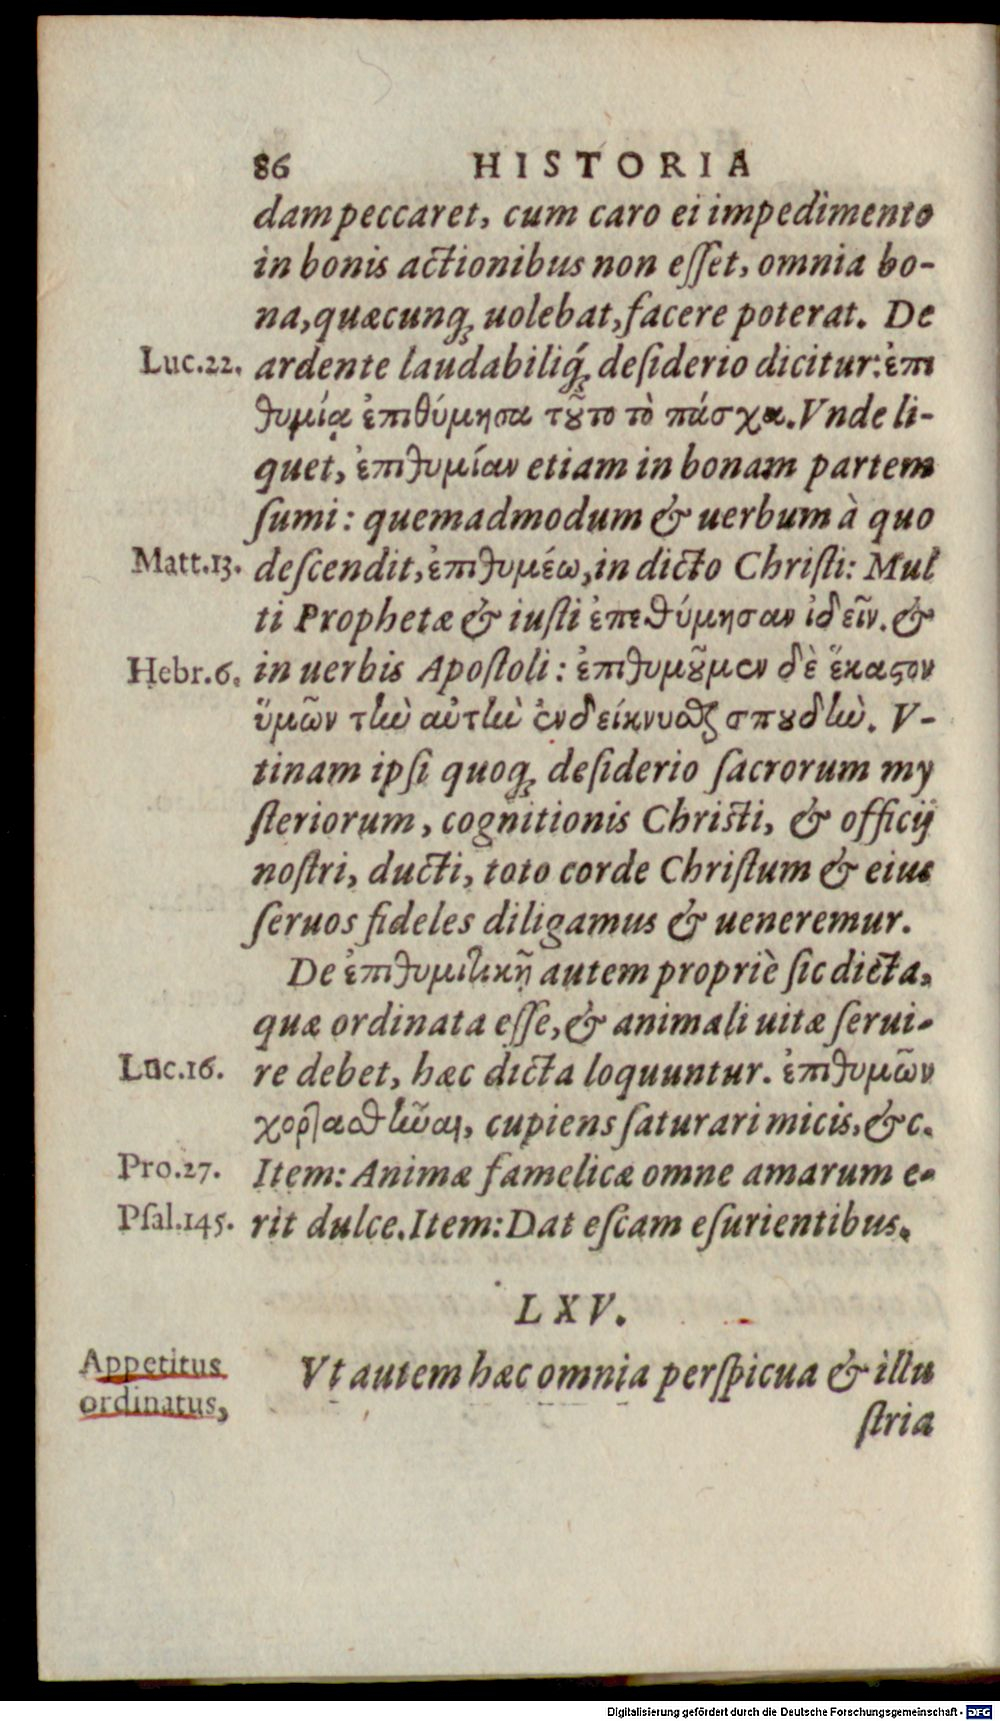 86 HISTORIA
dam peccaret, cum caro ei impedimento
in bonis actionibus non eſſet, omnia bo-
na, quæcunq; uolebat, facere poterat. De
Luc.22. ardente laudabiliq́; deſiderio dicitur: ἐπι
θυμίᾳ ἐπιθύμησα τȣ͂το τὸ πάσχα. Vnde li-
quet, ἐπιθυμίαν etiam in bonam partem
ſumi: quemadmodum & uerbum à quo
Matt.13. deſcendit, ἐπιθυμέω, in dicto Chriſti: Mul
ti Prophetæ & iuſti ἐπεθύμησαν ἰδεῖν. &
Hebr.6. in uerbis Apoſtoli: ἐπιθυμȣ͂μεν δὲ ἕκαϛον
ὕμῶν τὼ αὐτὼ ἐνδείκνυσθαι σπȣδὼ. V-
tinam ipſi quoq; deſiderio ſacrorum my
ſteriorum, cognitionis Chriſti, & officij
noſtri, ducti, toto corde Chriſtum & eius
ſeruos fideles diligamus & ueneremur.
De ἐπιθυμιτικῇ autem propriè ſic dicta,
quæ ordinata eſſe, & animali uitæ ſerui-
Luc.16. re debet, hæc dicta loquuntur. ἐπιθυμῶν
χορτασθῆναι, cupiens ſaturari micis, &c.
Pro.27. Item: Animæ famelicæ omne amarum e-
Pſal.145. rit dulce. Item: Dat eſcam eſurientibus.
LXV.
Appetitus
ordinatus,
Vt autem hæc omnia perſpicua & illu
ſtria
Digitalisierung gefördert durch die Deutsche Forschungsgemeinschaft - DFG